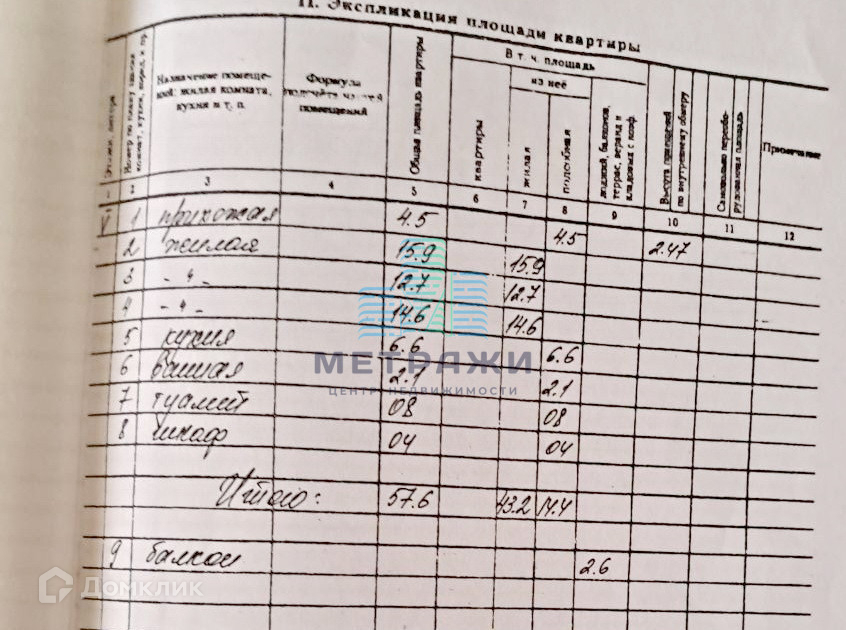 II. Экспликация площади квартиры
Этаж, литера
Номер по плану
комнат, кухни, корид. и пр.
Назначение помеще-
ний: жилая комната,
кухня и т. п.
Формула
подсчёта частей
помещений
Общая площадь квартиры
В т. ч. площадь
квартиры
из неё
жилая
подсобная
лоджий, балконов,
террас, веранд и
кладовых с коэф.
Высота помещений
по внутреннему обмеру
Самовольно переобо-
рудованная площадь
Примечание
1 2 3 4 5 6 7 8 9 10 11 12
V 1 прихожая 4.5 4.5 2.47
2 жилая 15.9 15.9
3 -"- 12.7 12.7
4 -"- 14.6 14.6
5 кухня 6.6 6.6
6 ванная 2.1 2.1
7 туалет 08 08
8 шкаф 04 04
Итого: 57.6 43.2 14.4
9 балкон 2.6
МЕТРАЖИ
ЦЕНТР НЕДВИЖИМОСТИ
Домклик